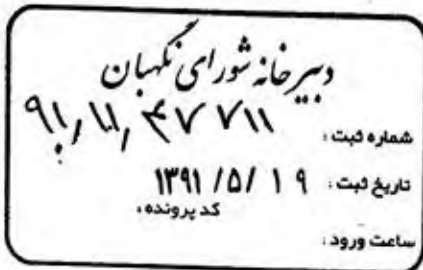 دبیرخانه شورای نگهبان
شماره ثبت : ۹۱/۱۱/۴۷۷۱۱
تاریخ ثبت : ۱۳۹۱/۵/۱۹
کد پرونده :
ساعت ورود :